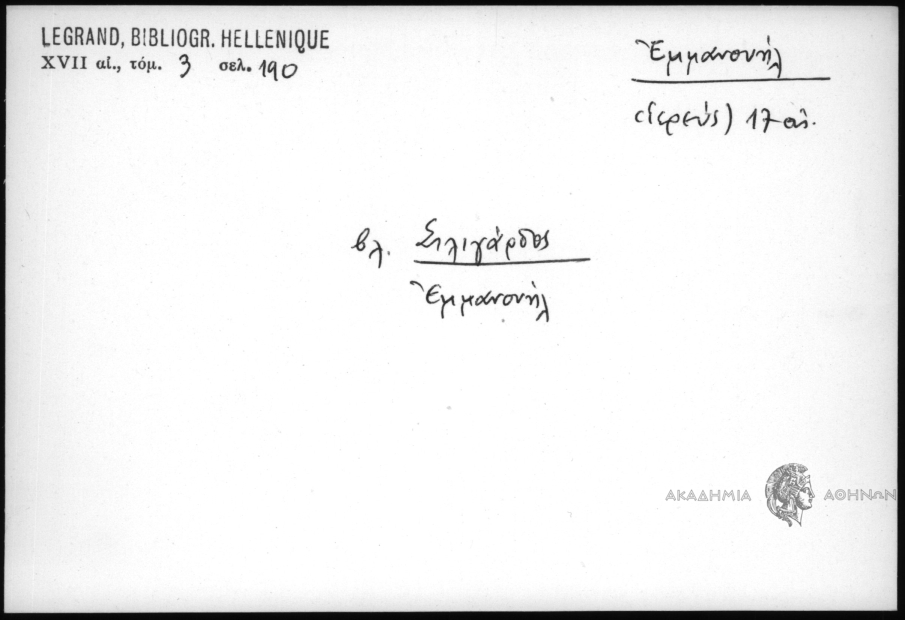 LEGRAND, BIBLIOGR. HELLENIQUE
XVII αἰ., τόμ. 3 σελ. 190
Ἐμμανουήλ
(ἱερεύς) 17 αἰ.
βλ. Σιλιγάρδος
Ἐμμανουήλ
ΑΚΑΔΗΜΙΑ ΑΘΗΝΩΝ